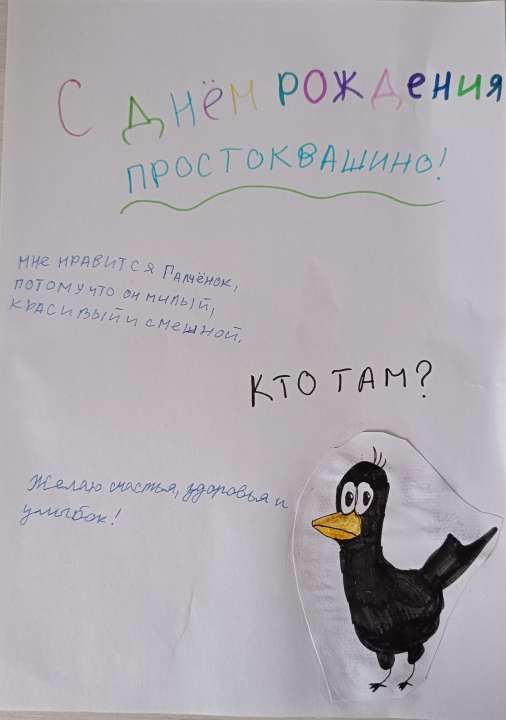 С ДНЁМ РОЖДЕНИЯ
ПРОСТОКВАШИНО!
МНЕ НРАВИТСЯ ГАЛЧЁНОК,
ПОТОМУ ЧТО ОН МИЛЫЙ,
КРАСИВЫЙ И СМЕШНОЙ.
КТО ТАМ?
Желаю счастья, здоровья и
улыбок!